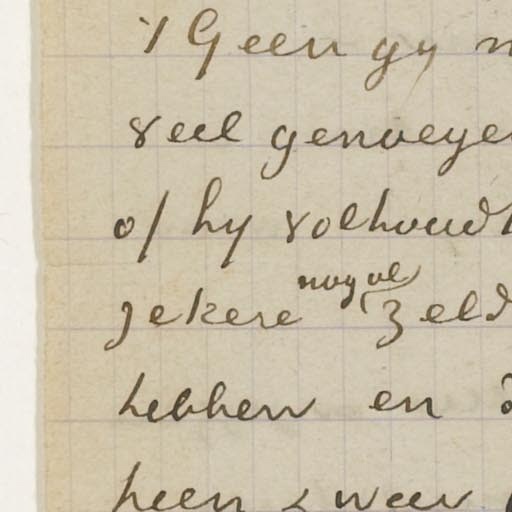 't Geen gy
veel genoeye
of hy volhoudt
zekere nog al zeld
hebben en
heen zwae